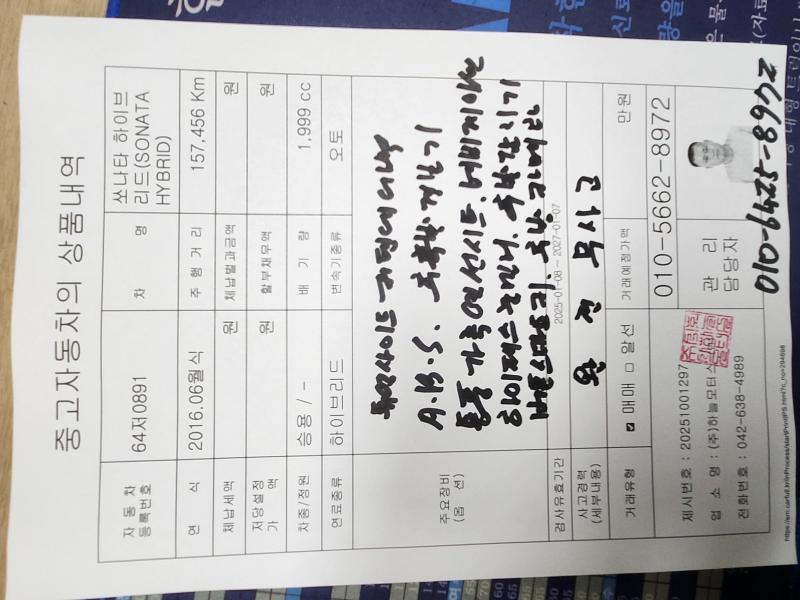 중고자동차의 상품내역
자동차 등록번호 64저0891 차 명 쏘나타 하이브리드(SONATA HYBRID)
연 식 2016.06월식 주 행 거 리 157,456 Km
체납세액 원 체납벌과금액 원
저당설정 가 액 원 할부채무액 원
차종/정원 승용 / - 배 기 량 1,999 cc
연료종류 하이브리드 변속기종류 오토
주요장비 (옵 션)
A.B.S. 후측방경보기
통풍 가죽 열선시트. 네비게이션
하이패스룸미러. 후방감지기
버튼스마트키. 후방카메라
검사유효기간 2025-01-08 ~ 2027-01-07
사고경력 (세부내용) 완 전 무사고
거래유형 ☑ 매매 □ 알선 거래예정가액 만원
제시번호 : 20251001297
업 소 명 : (주)하늘모터스
전화번호 : 042-638-4989
관 리 담당자
010-5662-8972
010-6425-8972